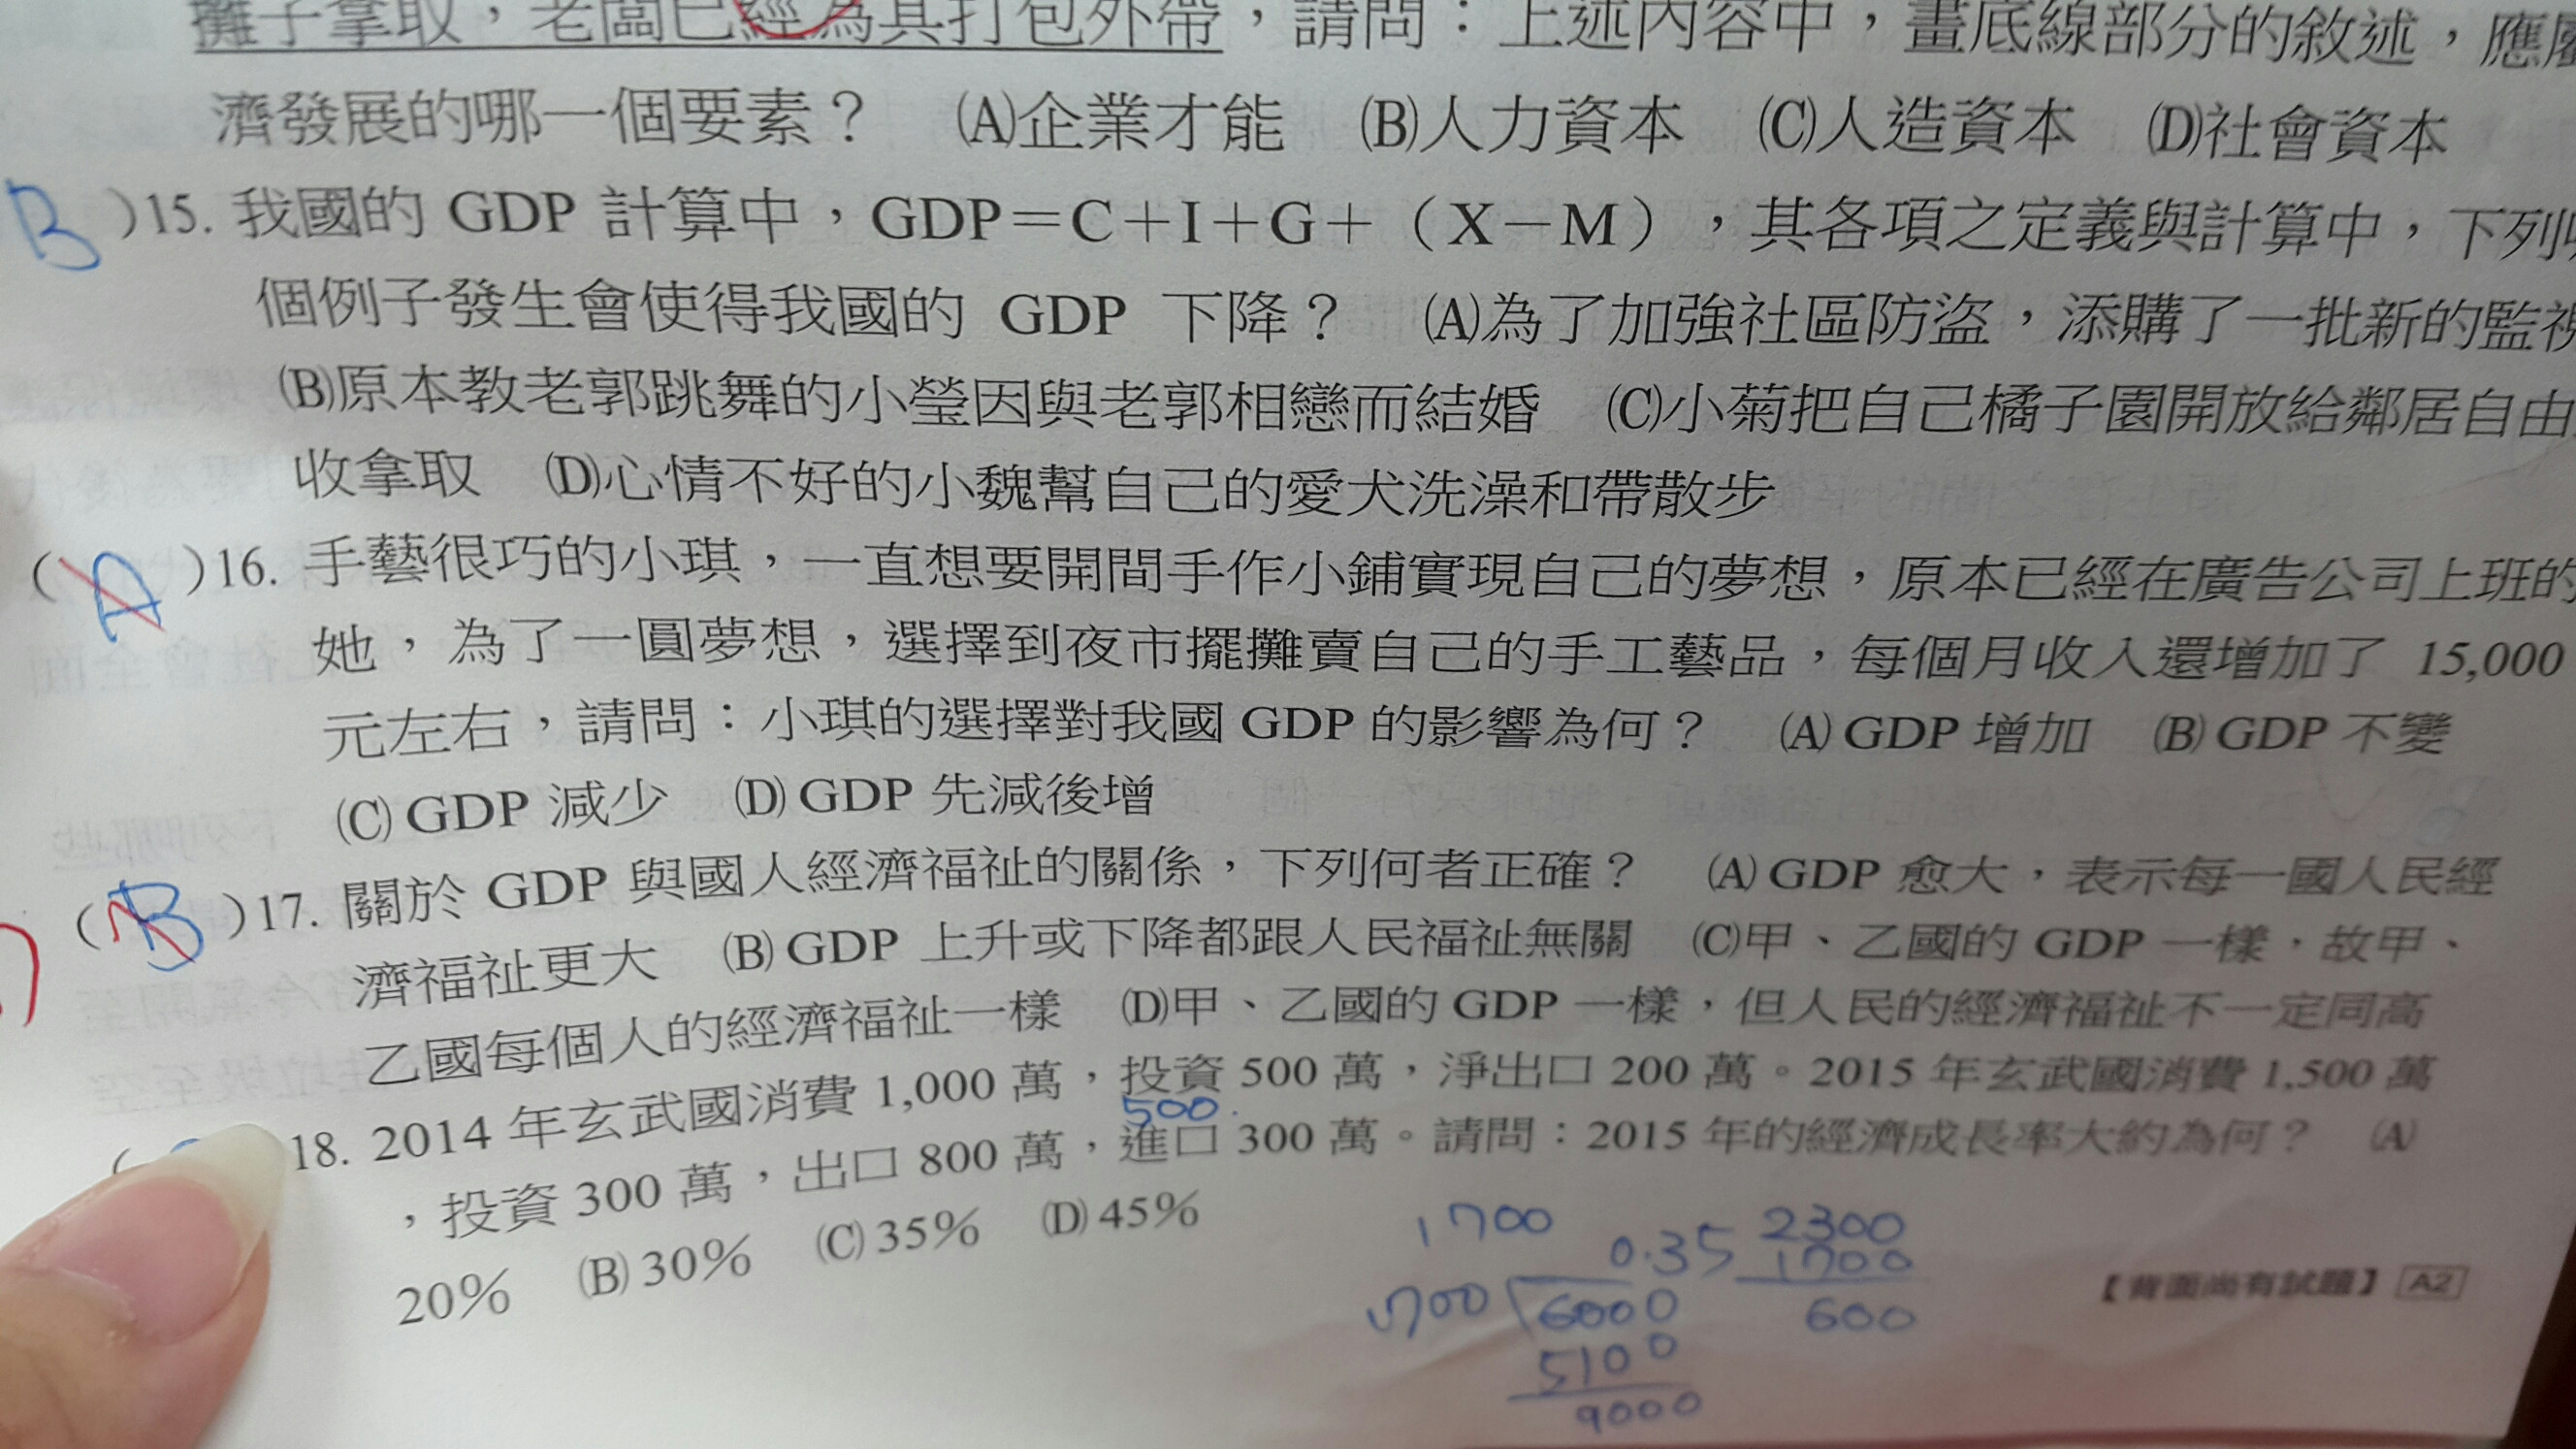 攤子拿取，老闆已經為其打包外帶，請問：上述內容中，畫底線部分的敘述，應
濟發展的哪一個要素？ (A)企業才能 (B)人力資本 (C)人造資本 (D)社會資本
B )15. 我國的 GDP 計算中，GDP＝C＋I＋G＋（X－M），其各項之定義與計算中，下列
個例子發生會使得我國的 GDP 下降？ (A)為了加強社區防盜，添購了一批新的監
(B)原本教老郭跳舞的小瑩因與老郭相戀而結婚 (C)小菊把自己橘子園開放給鄰居自由
收拿取 (D)心情不好的小魏幫自己的愛犬洗澡和帶散步
( A )16. 手藝很巧的小琪，一直想要開間手作小鋪實現自己的夢想，原本已經在廣告公司上班的
她，為了一圓夢想，選擇到夜市擺攤賣自己的手工藝品，每個月收入還增加了 15,000
元左右，請問：小琪的選擇對我國 GDP 的影響為何？ (A) GDP 增加 (B) GDP 不變
(C) GDP 減少 (D) GDP 先減後增
( B )17. 關於 GDP 與國人經濟福祉的關係，下列何者正確？ (A) GDP 愈大，表示每一國人民經
濟福祉更大 (B) GDP 上升或下降都跟人民福祉無關 (C)甲、乙國的 GDP 一樣，故甲、
乙國每個人的經濟福祉一樣 (D)甲、乙國的 GDP 一樣，但人民的經濟福祉不一定同高
( 18. 2014 年玄武國消費 1,000 萬，投資 500 萬，淨出口 200 萬。2015 年玄武國消費 1,500 萬
500
，投資 300 萬，出口 800 萬，進口 300 萬。請問：2015 年的經濟成長率大約為何？ (A)
20% (B) 30% (C) 35% (D) 45%
1700
0.35
2300
1700
600
1700
6000
5100
9000
【背面尚有試題】 A2